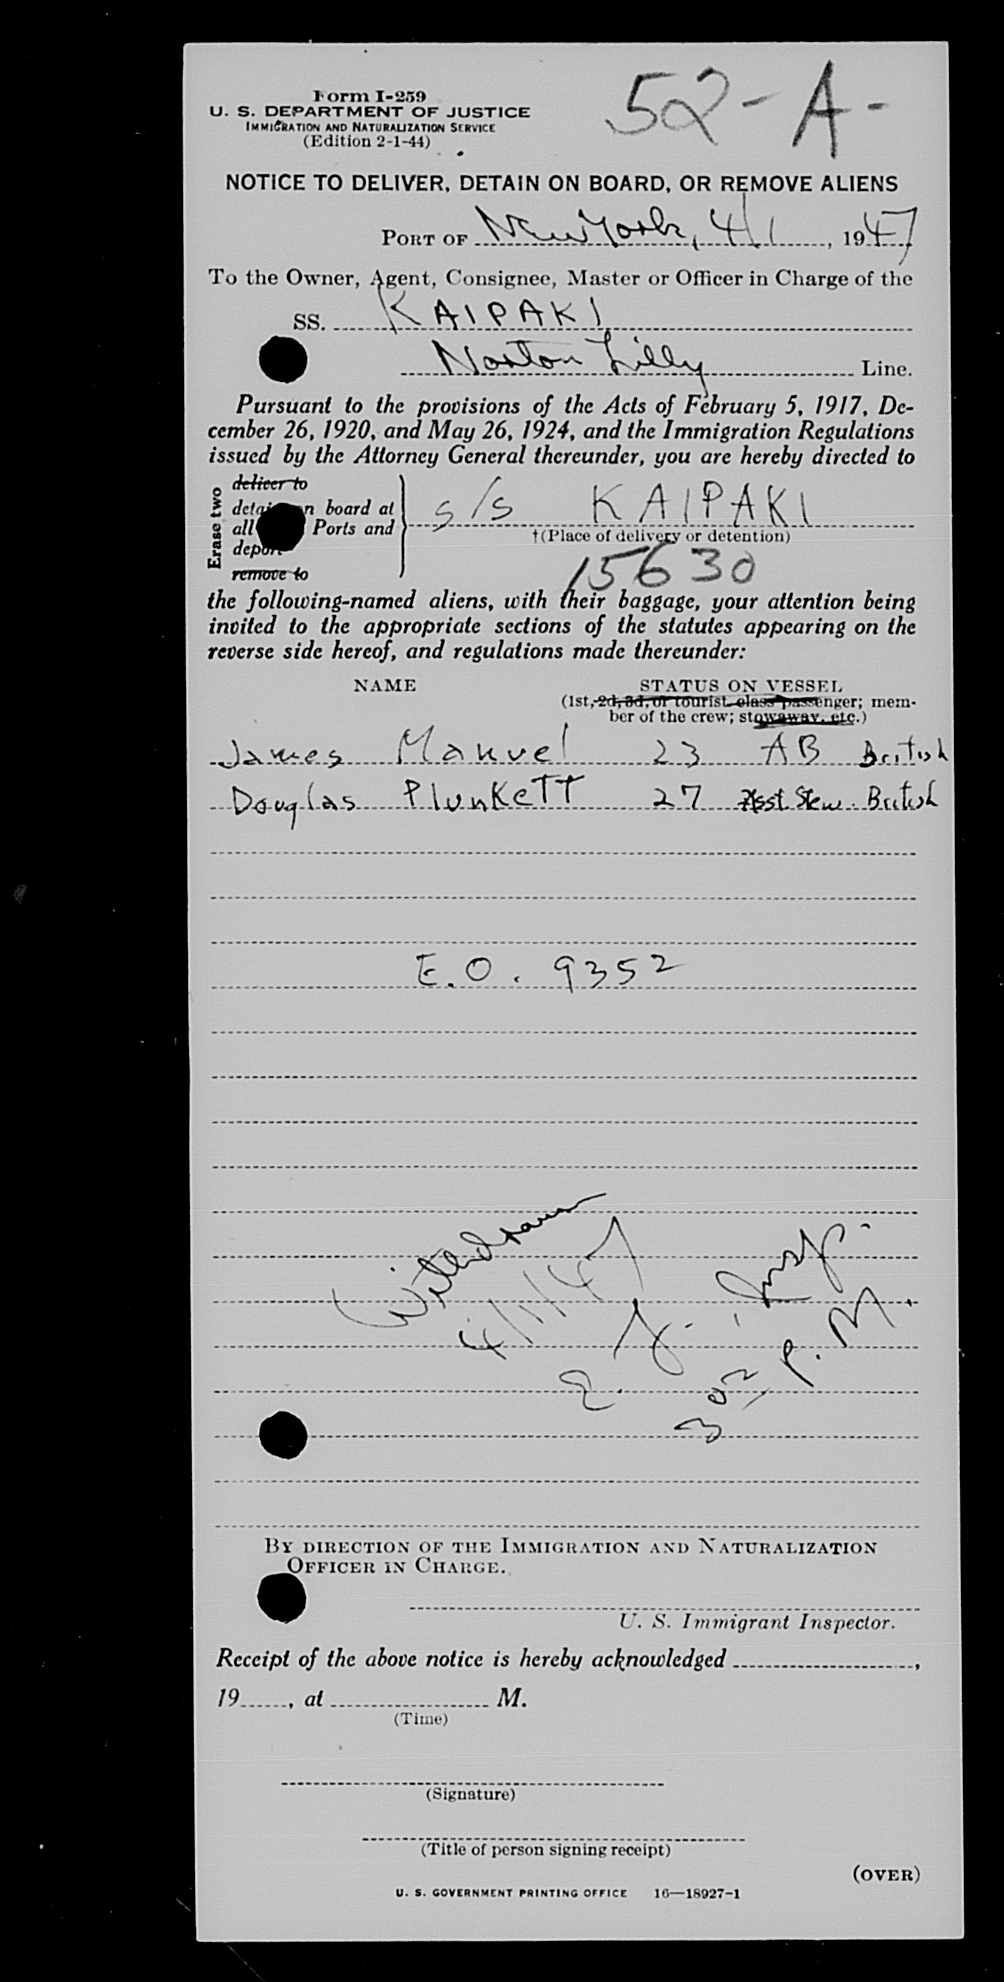 52-A-
Form I-259
U. S. DEPARTMENT OF JUSTICE
IMMIGRATION AND NATURALIZATION SERVICE
(Edition 2-1-44)
NOTICE TO DELIVER, DETAIN ON BOARD, OR REMOVE ALIENS
PORT OF New York, 4/1, 1947
To the Owner, Agent, Consignee, Master or Officer in Charge of the
SS. KAIPAKI
Norton Lilly Line.
Pursuant to the provisions of the Acts of February 5, 1917, De-
cember 26, 1920, and May 26, 1924, and the Immigration Regulations
issued by the Attorney General thereunder, you are hereby directed to
Erase two
deliver to
detain on board at
all Ports and
deport
remove to
s/s KAIPAKI
†(Place of delivery or detention)
15630
the following-named aliens, with their baggage, your attention being
invited to the appropriate sections of the statutes appearing on the
reverse side hereof, and regulations made thereunder:
NAME STATUS ON VESSEL
(1st, 2d, 3d, or tourist class passenger; mem-
ber of the crew; stowaway, etc.)
James Manuel 23 AB British
Douglas Plunkett 27 Asst. Stew. British
E.O. 9352
Withdrawn
4/1/47
Insp.
3 02 P.M.
BY DIRECTION OF THE IMMIGRATION AND NATURALIZATION
OFFICER IN CHARGE.
U. S. Immigrant Inspector.
Receipt of the above notice is hereby acknowledged ,
19 , at M.
(Time)
(Signature)
(Title of person signing receipt)
(OVER)
U. S. GOVERNMENT PRINTING OFFICE 16—18927-1